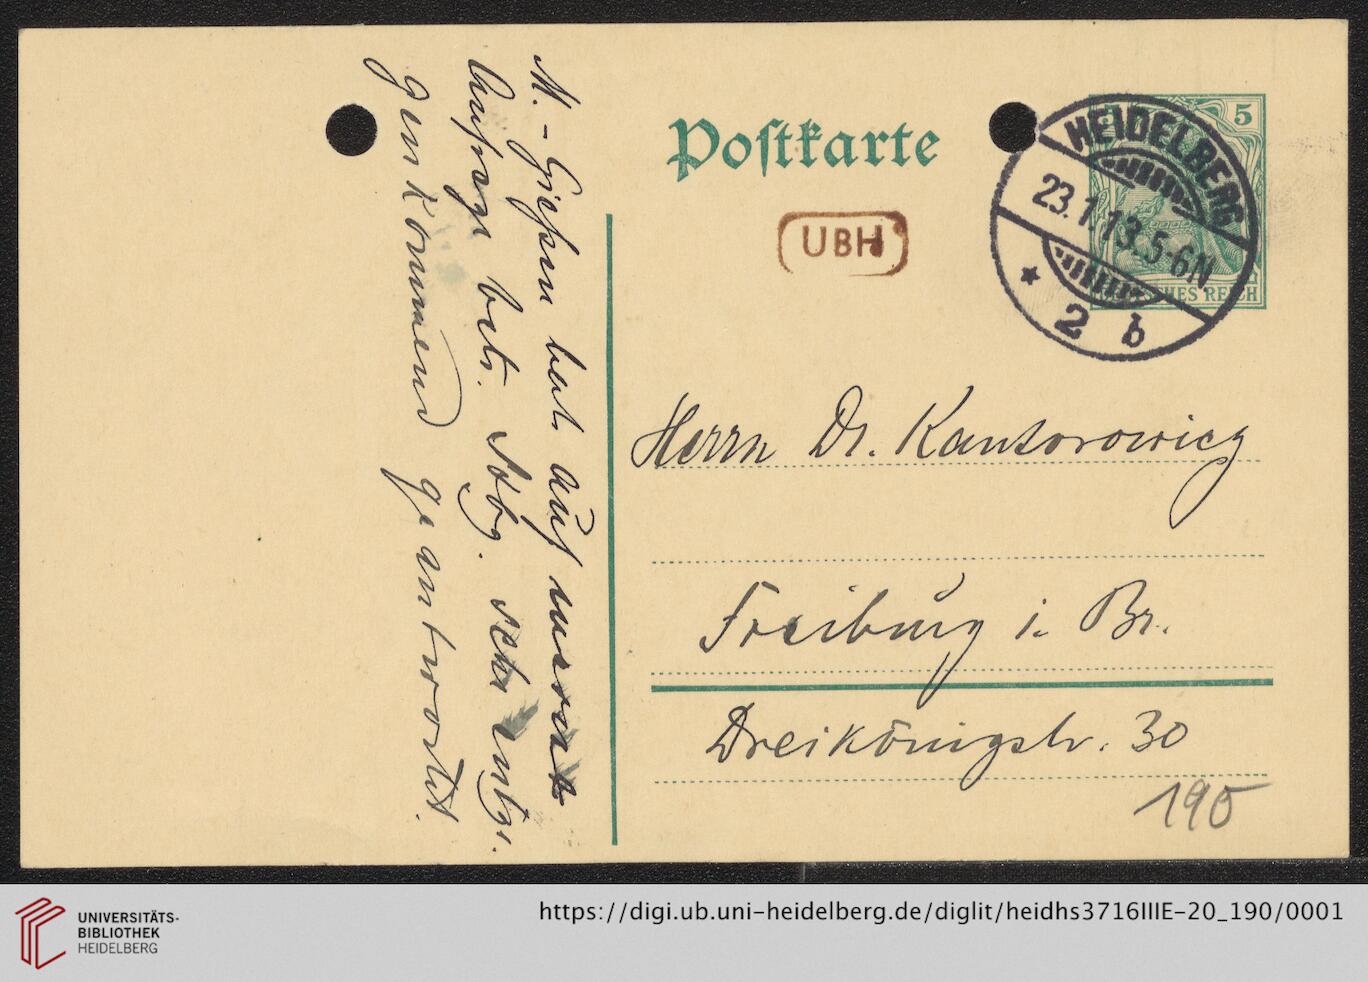 M.-Gießen hat auf meine
Anfrage betr. Stbg. sehr entge-
genkommend geantwortet.
Postkarte
UBH
HEIDELBERG
23.1.13.5-6N
* 2 b
5
DEUTSCHES REICH
Herrn Dr. Kantorowicz
Freiburg i. Br.
Dreikönigstr. 30
190
UNIVERSITÄTS-
BIBLIOTHEK
HEIDELBERG
https://digi.ub.uni-heidelberg.de/diglit/heidhs3716IIIE-20_190/0001